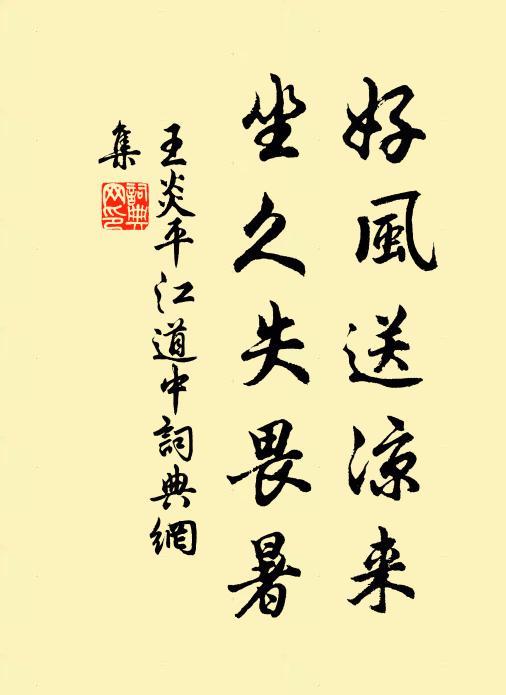 好風送涼来
坐久失畏暑
王炎平江道中詞典網
集
詞典网印